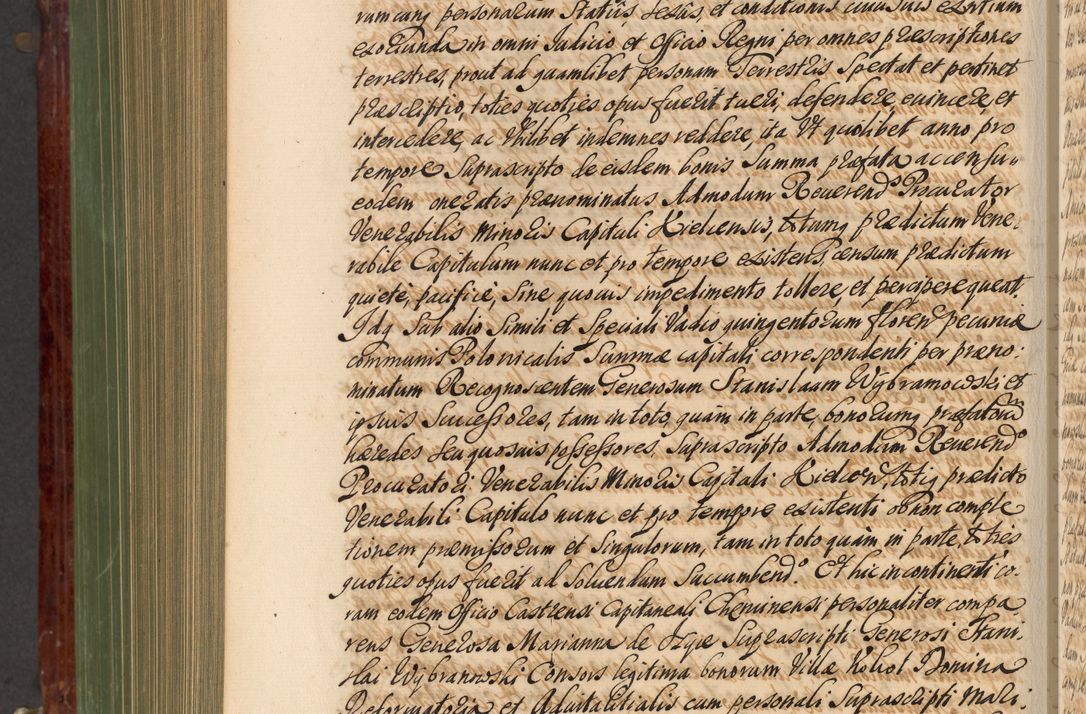 rumcunq personarum Statûs Sexûs, et conditionis cuiusuis existant
exorienda in omni Iudicio et Officio Regni per omnes præscriptiones
terrestres, prout ad quamlibet personam Terrestris Spectat et pertinet
præscriptio, toties quoties opus fuerit tueri, defendere, euincere, et
intercedere, ac Vtilibet indemnes reddere, ita Vt quolibet anno pro
tempore Suprascripto de eisdem bonis Summa præfata ac censu
eodem oneratis prænominatus Admodum Reuerend9 Procurator
Venerabilis Minoris Capituli Kielcensis, totumq prædictum Vene,
rabile Capitulum nunc et pro tempore existens censum prædictum
quietè, pacificè, Sine quouis impedimento tollere, et percipere queat.
Idq Sub alio Simili et Speciali Vadio quingentorum floren pecuniæ
communis Polonicalis Summæ capitali correspondenti per præno:
minatum Recognoscentem Generosum Stanislaum Wybranowski et
ipsius Successores, tam in toto, quàm in parte, bonorumq præfatorũ
hæredes Seu quosuis possessores, Suprascripto Admodum Reuerendo
Procuratori Venerabilis Minoris Capituli Kielcen, totiq prædicto
Venerabili Capitulo nunc et pro tempore existenti ob non comple
tionem præmissorum et Singulorum, tam in toto quàm in parte, toties
quoties opus fuerit ad Soluendum Succumbendo. Et hic in continenti co.
ram eodem Officio Castrensi Capitaneali Chencinensi personaliter compa
rens Generosa Marianna de Suprascripti Generosi Stani,
slai Wybranowski Consors legitima bonorum Villæ Domina
Reformatoria et Aduitalitialis cum personali Suprascripti Mari: